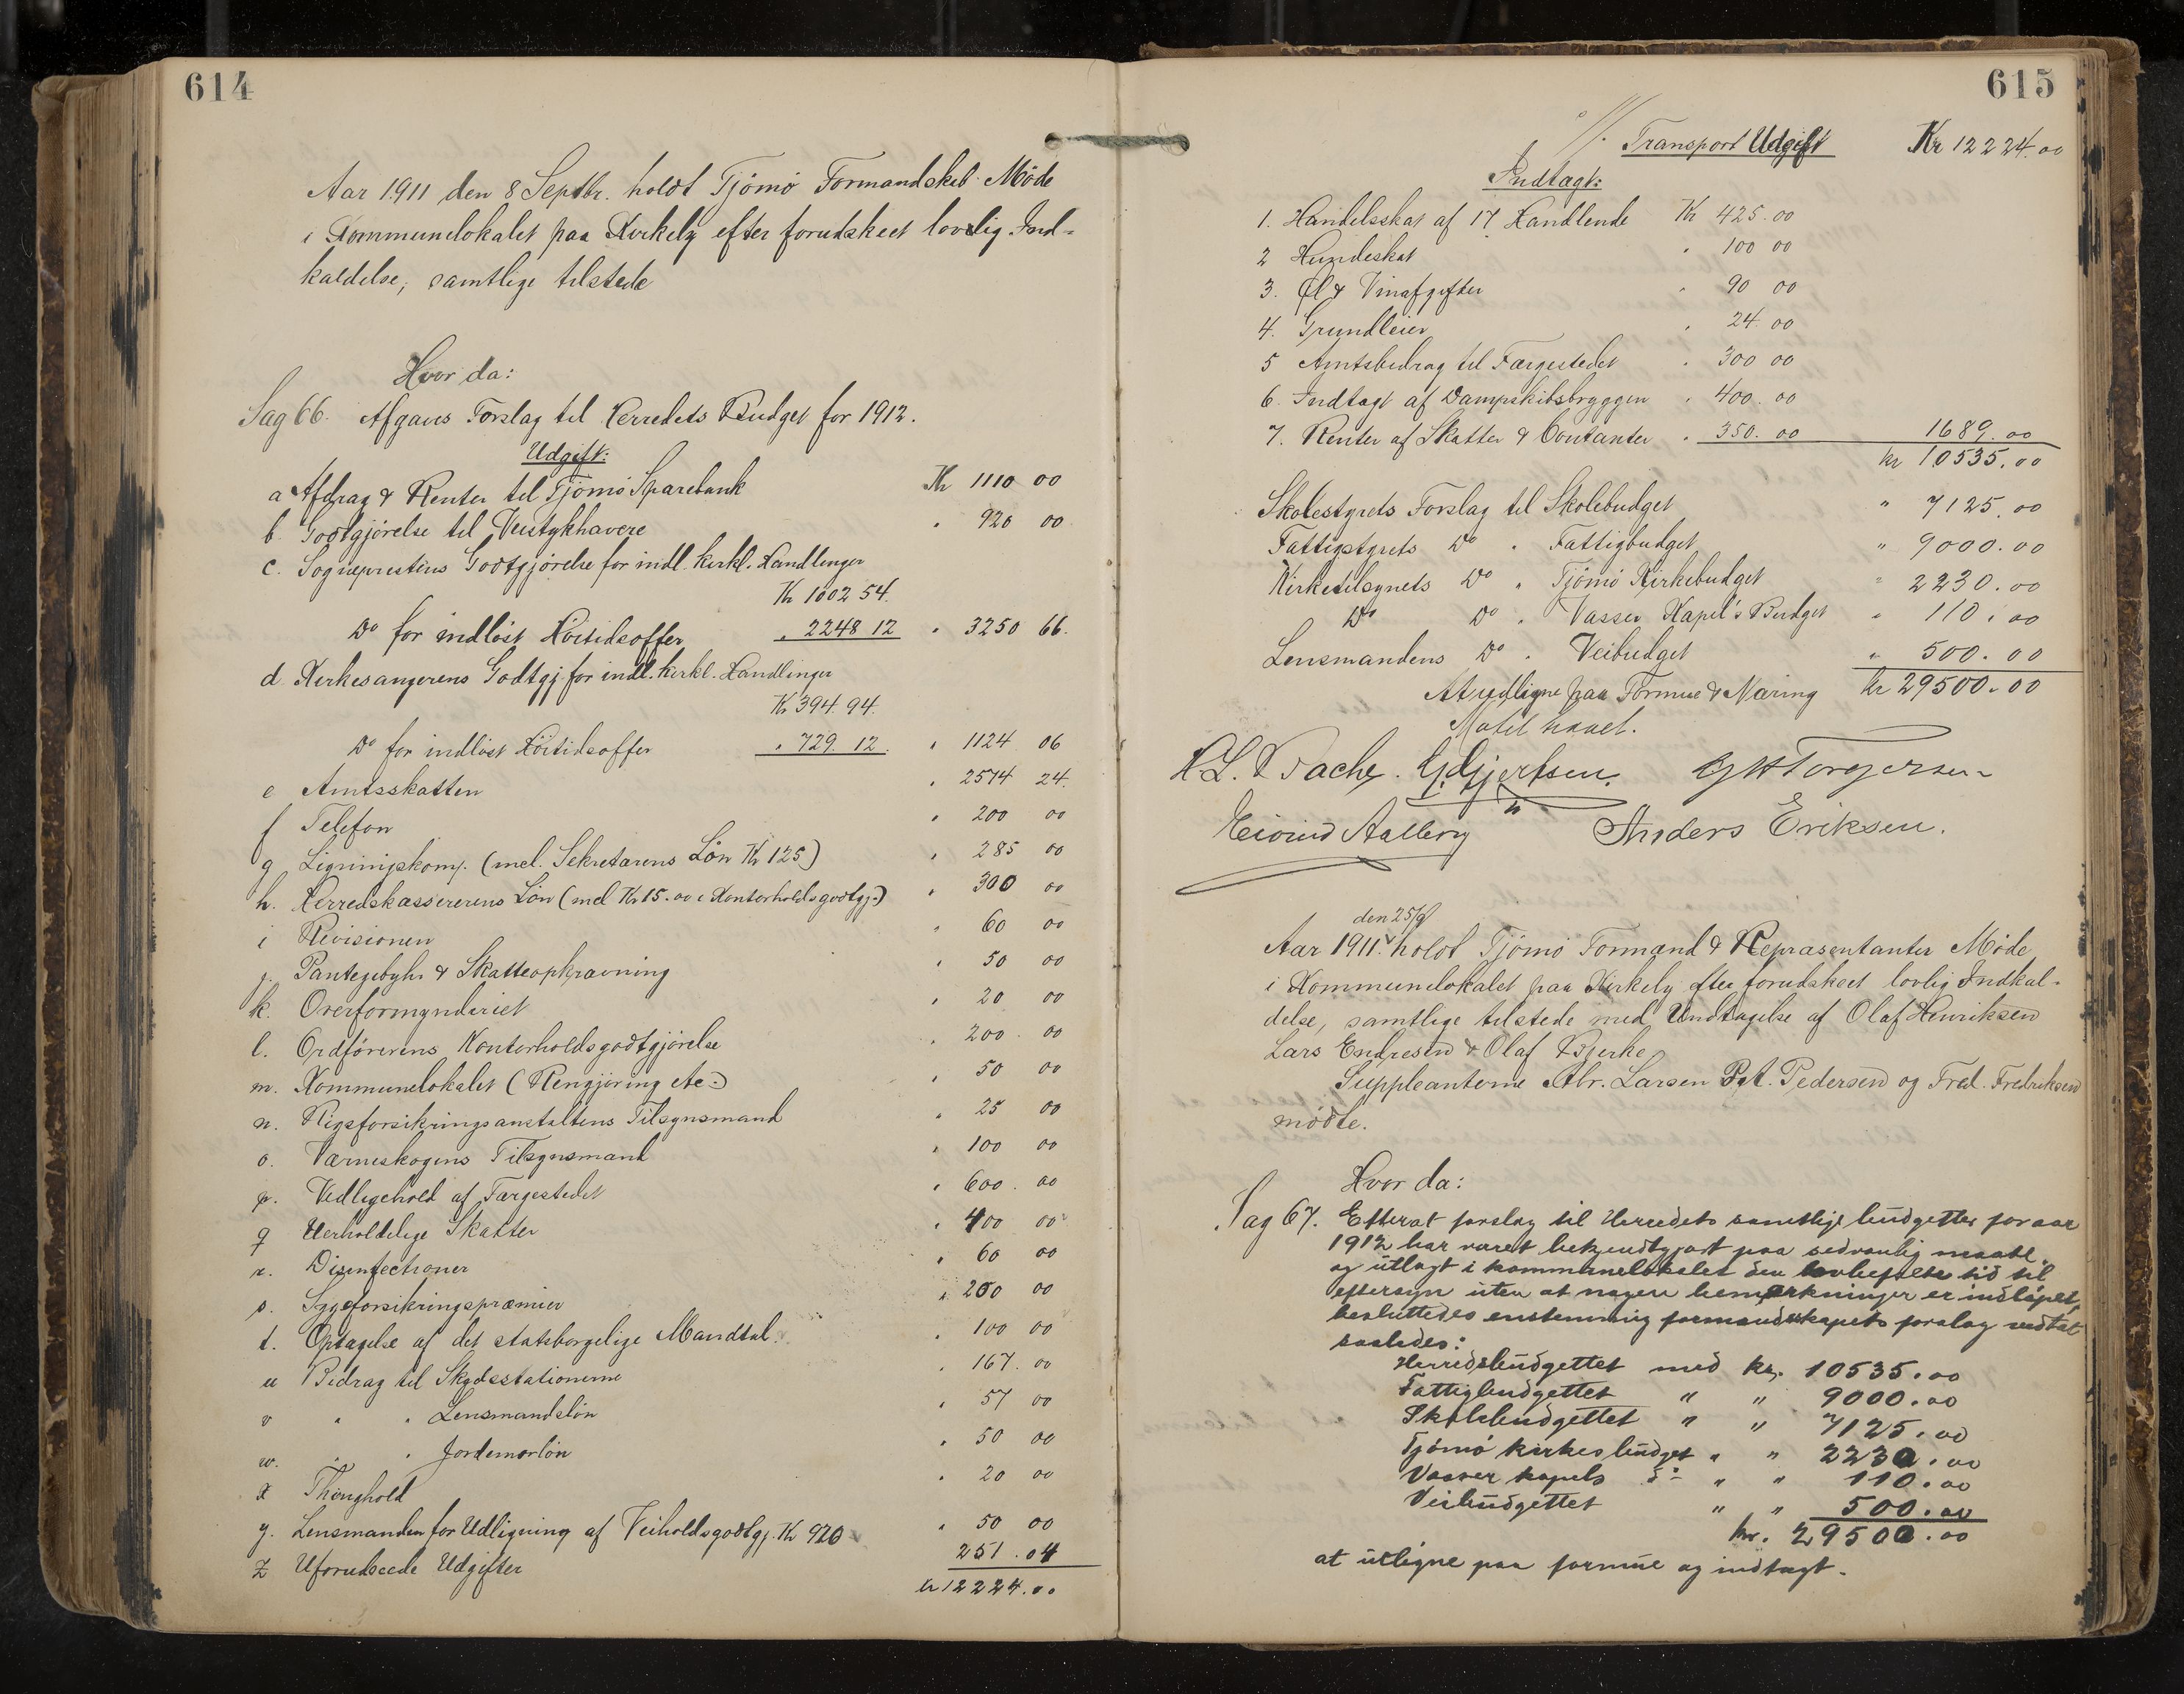 614
Aar 1911 den 8 Septbr. holdt Tjömö Formandskab Möde
i Kommunelokalet paa Kirkely efter forudskeet lovlig Ind-
kaldelse, samtlige tilstede
Hvor da:
Sag 66. Afgaves Forslag til Herredets Budget for 1912.
Udgift:
a Afdrag & Renter til Tjömö Sparebank Kr 1110 00
b. Godtgjörelse til Veistykhavere " 920 00
c. Sogneprestens Godtgjörelse for indl. kirkl. Handlinger
Kr 1002 54.
Do for indlöst Höitidsoffer " 2248 12 " 3250 66.
d. Kirkesangerens Godtgj. for indl. kirkl. Handlinger
Kr 394. 94.
Do for indlöst Höitidsoffer " 729. 12. " 1124 06
e Amtsskatten " 2574 24.
f Telefon " 200 00
g Ligningskom. (mel. Sekretærens Lön Kr 125) " 285 00
h. Herredskassererens Lön (mel Kr 15.00 i Kontorholdsgodtgj.) " 300 00
i Revisionen " 60 00
j. Pantegebyhr & Skatteopkrævning " 50 00
k. Overformynderiet " 20 00
l. Ordförerens Kontorholdsgodtgjörelse " 200 00
m. Kommunelokalet (Rengjöring etc.) " 50 00
n. Rigsforsikringsanstaltens Tilsynsmand " 25 00
o. Værneskogens Tilsynsmand " 100 00
p. Vedligehold af Færgestedet " 600. 00
q Uerholdelige Skatter " 400 00
r. Disinfectioner " 60 00
s. Sygeforsikringspræmier " 200 00
t. Optagelse af det statsborgelige Mandtal. " 100 00
u Bidrag til Skydsstationerne " 167. 00
v " " Lensmandslön " 57 00
w. " " Jordemorlön " 50 00
x Thinghold " 20 00
y. Lensmanden for Udligning af Veiholdsgodtgj. Kr 920 " 50 00
z Uforudseede Udgifter 251.04
kr 12224.00
615
%. Transport Udgift Kr 12224.00
Indtægt:
1. Handelsskat af 17 Handlende Kr 425.00
2 Hundeskat " 100 00
3. Öl & Vinafgifter " 90 00
4. Grundleier " 24 00
5 Amtsbidrag til Færgestedet " 300 00
6. Indtægt af Dampskibsbryggen " 400. 00
7. Renter af Skatter & Contanter " 350. 00 1689.00
kr 10535.00
Skolestyrets Forslag til Skolebudget " 7125.00
Fattigstyrets Do " Fattigbudget " 9000.00
Kirketilsynets Do " Tjömö Kirkebudget " 2230.00
Do Do " Vasser Kapel's Budget " 110.00
Lensmandens Do " Veibudget " 500.00
At udligne paa Formue & Næring kr 29500.00
Mødet hævet.
H.L. Bache. G. Gjertsen. Torgersen
Eivind Aalberg Anders Eriksen.
den 25/9
Aar 1911. holdt Tjömö Formænd & Repræsentanter Möde
i Kommunelokalet paa Kirkely efter forudskeet lovlig Indkal-
delse, samtlige tilstede med Undtagelse af Olaf Henriksen
Lars Endresen & Olaf Bjerke
Suppleanterne Abr. Larsen Pet. Pedersen og Fred. Fredriksen
mödte.
Hvor da:
Sag 67. Efterat forslag til Herredets samtlige budgetter for aar
1912 har været bekjendtgjort paa sedvanlig maate
og utlagt i kommunelokalet den lovbefalte tid til
eftersyn uten at nogen bemerkninger er indlöpet,
besluttedes enstemmig formandskapets forslag vedtat
saaledes:
Herredsbudgettet med kr. 10535.00
Fattigbudgettet " " 9000.00
Skolebudgettet " " 7125.00
Tjömö kirkes budget " " 2230.00
Vasser kapels do " " 110.00
Veibudgettet " " 500.00
kr. 29500.00
at utligne paa formue og indtægt.